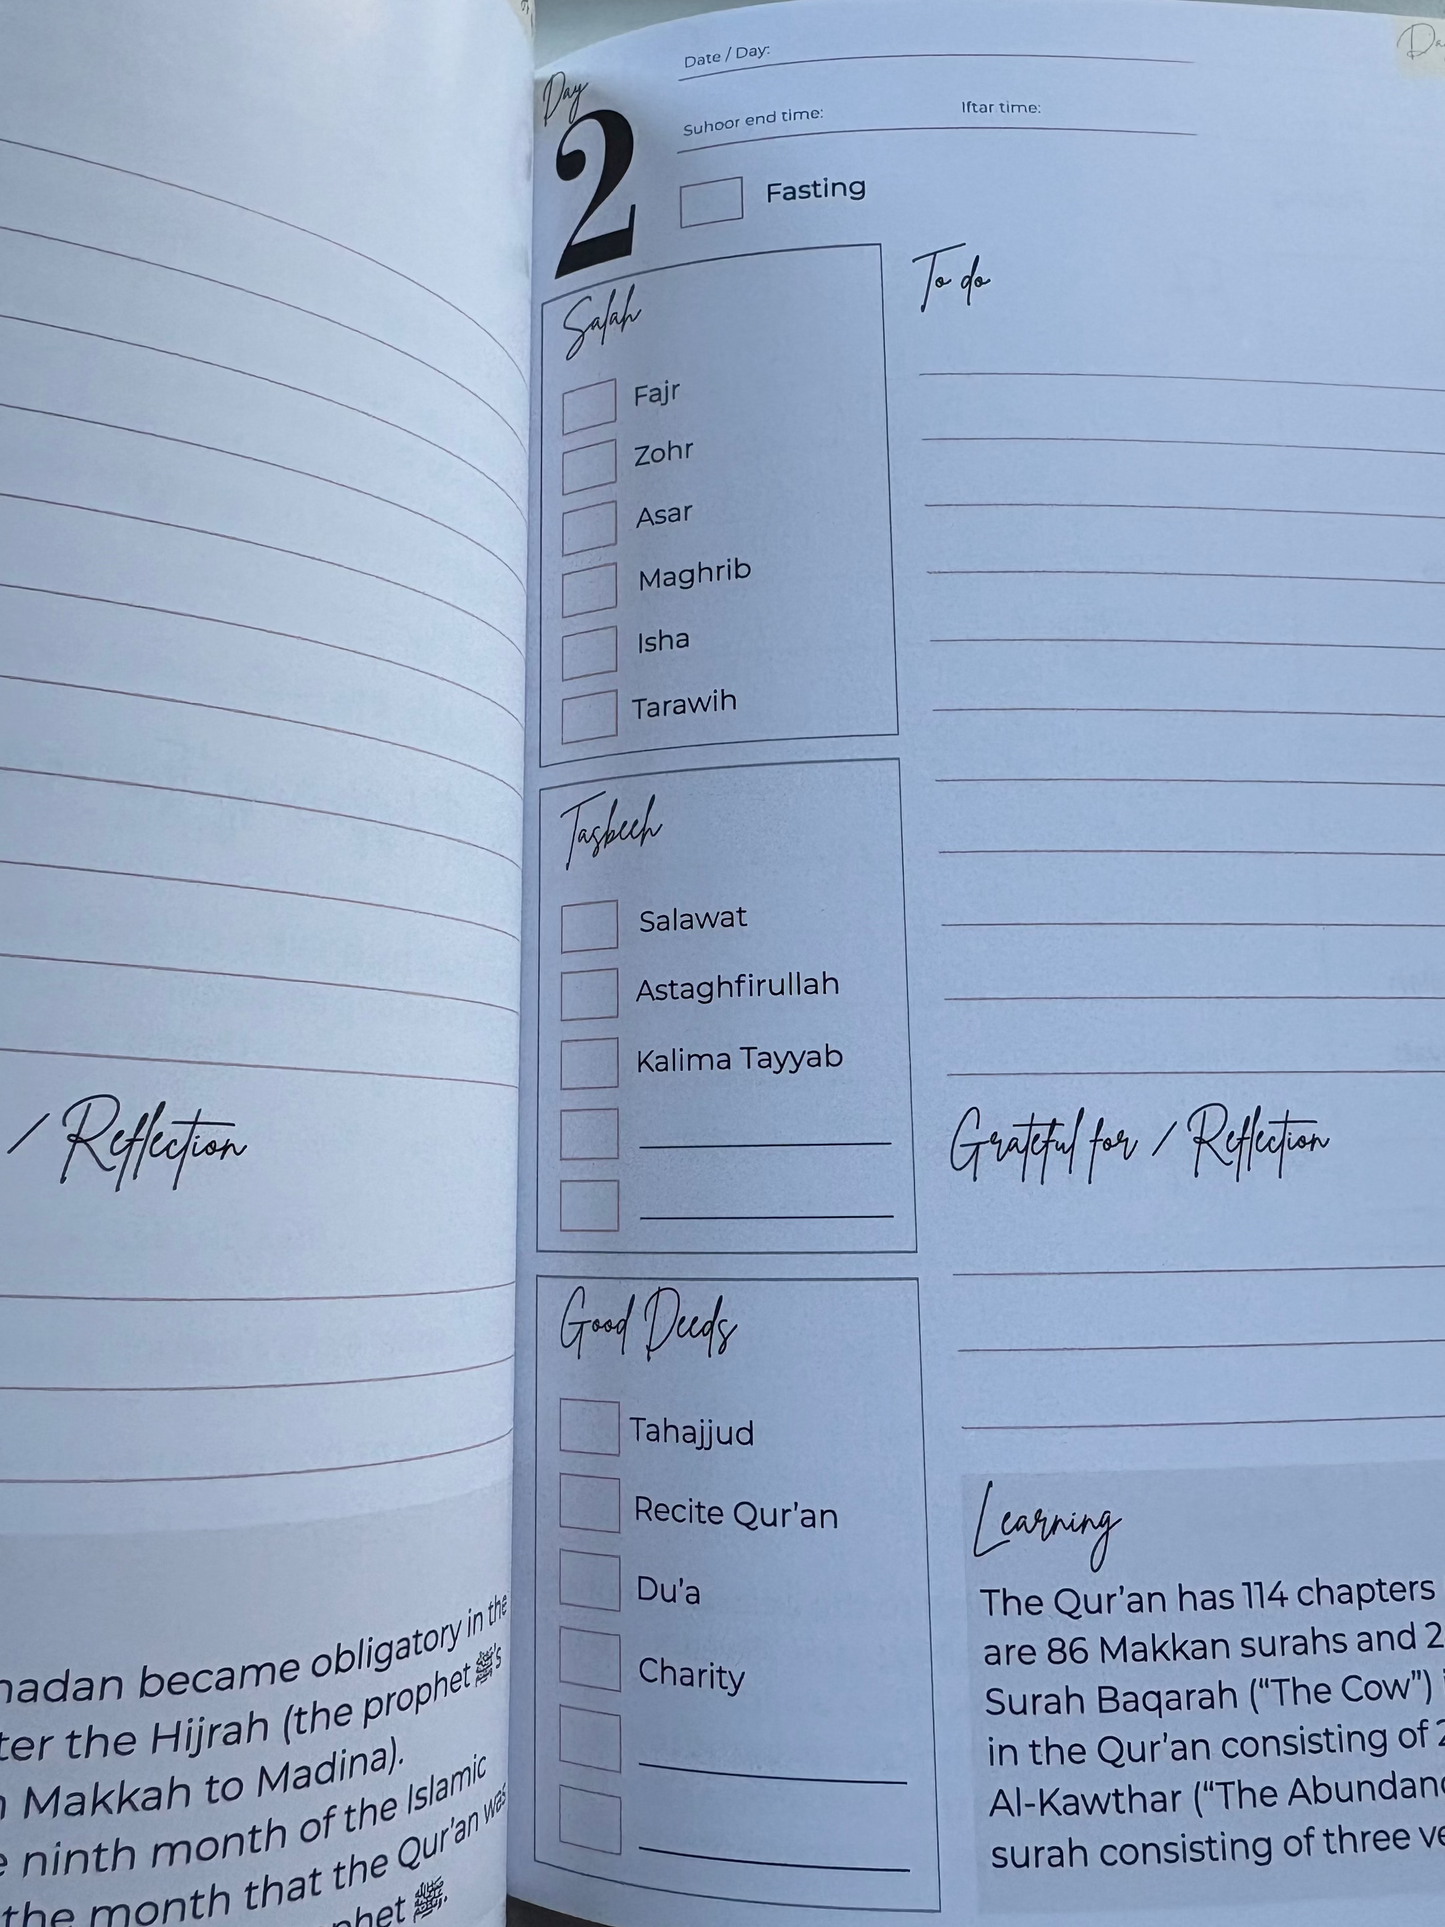 / Reflection
madan became obligatory in the
ter the Hijrah (the prophet ﷺ's
Makkah to Madina).
ninth month of the Islamic
the month that the Qur'an was
phet ﷺ.
Day
2
Date / Day:
Suhoor end time: Iftar time:
Fasting
Salah
Fajr
Zohr
Asar
Maghrib
Isha
Tarawih
Tasbeeh
Salawat
Astaghfirullah
Kalima Tayyab
Good Deeds
Tahajjud
Recite Qur'an
Du'a
Charity
To do
Grateful for / Reflection
Learning
The Qur'an has 114 chapters
are 86 Makkan surahs and 2
Surah Baqarah ("The Cow")
in the Qur'an consisting of 2
Al-Kawthar ("The Abundanc
surah consisting of three ve